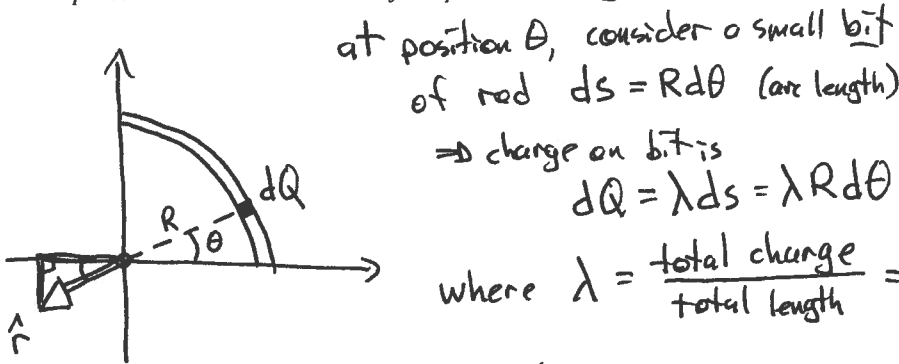 at position θ, consider a small bit
of rod ds = Rdθ (arc length)
⇒ charge on bit is
dQ = λds = λRdθ
where λ = total charge / total length =
dQ
R
θ
r̂